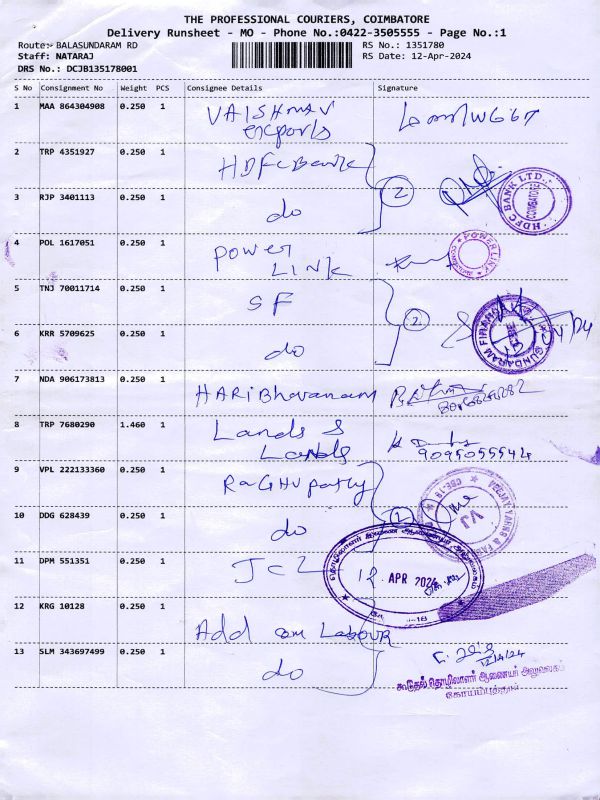 THE PROFESSIONAL COURIERS, COIMBATORE
Delivery Runsheet - MO - Phone No.:0422-3505555 - Page No.:1
Route:- BALASUNDARAM RD
RS No.: 1351780
Staff: NATARAJ
RS Date: 12-Apr-2024
DRS No.: DCJB135178001
S No Consignment No Weight PCS Consignee Details Signature
1 MAA 864304908 0.250 1 VAISHNAV
exports
2 TRP 4351927 0.250 1 HDFC Bank
HDFC BANK LTD. COIMBATORE
3 RJP 3401113 0.250 1 do 2
4 POL 1617051 0.250 1 POWER
LINK
POWER LINK
5 TNJ 70011714 0.250 1 SF
6 KRR 5709625 0.250 1 do 2
SUNDARAM FINANCE
7 NDA 906173813 0.250 1 HARI Bhavanam
8 TRP 7680290 1.460 1 Lands &
Lands
9095055542
9 VPL 222133360 0.250 1 RAGHU pathy
10 DDG 628439 0.250 1 do
11 DPM 551351 0.250 1 JCL
12 APR 2024
12 KRG 10128 0.250 1 Add com Labour
13 SLM 343697499 0.250 1 do
12/4/24
கூடுதல் தொழிலாளர் ஆணையர் அலுவலகம்
கோயம்புத்தூர்